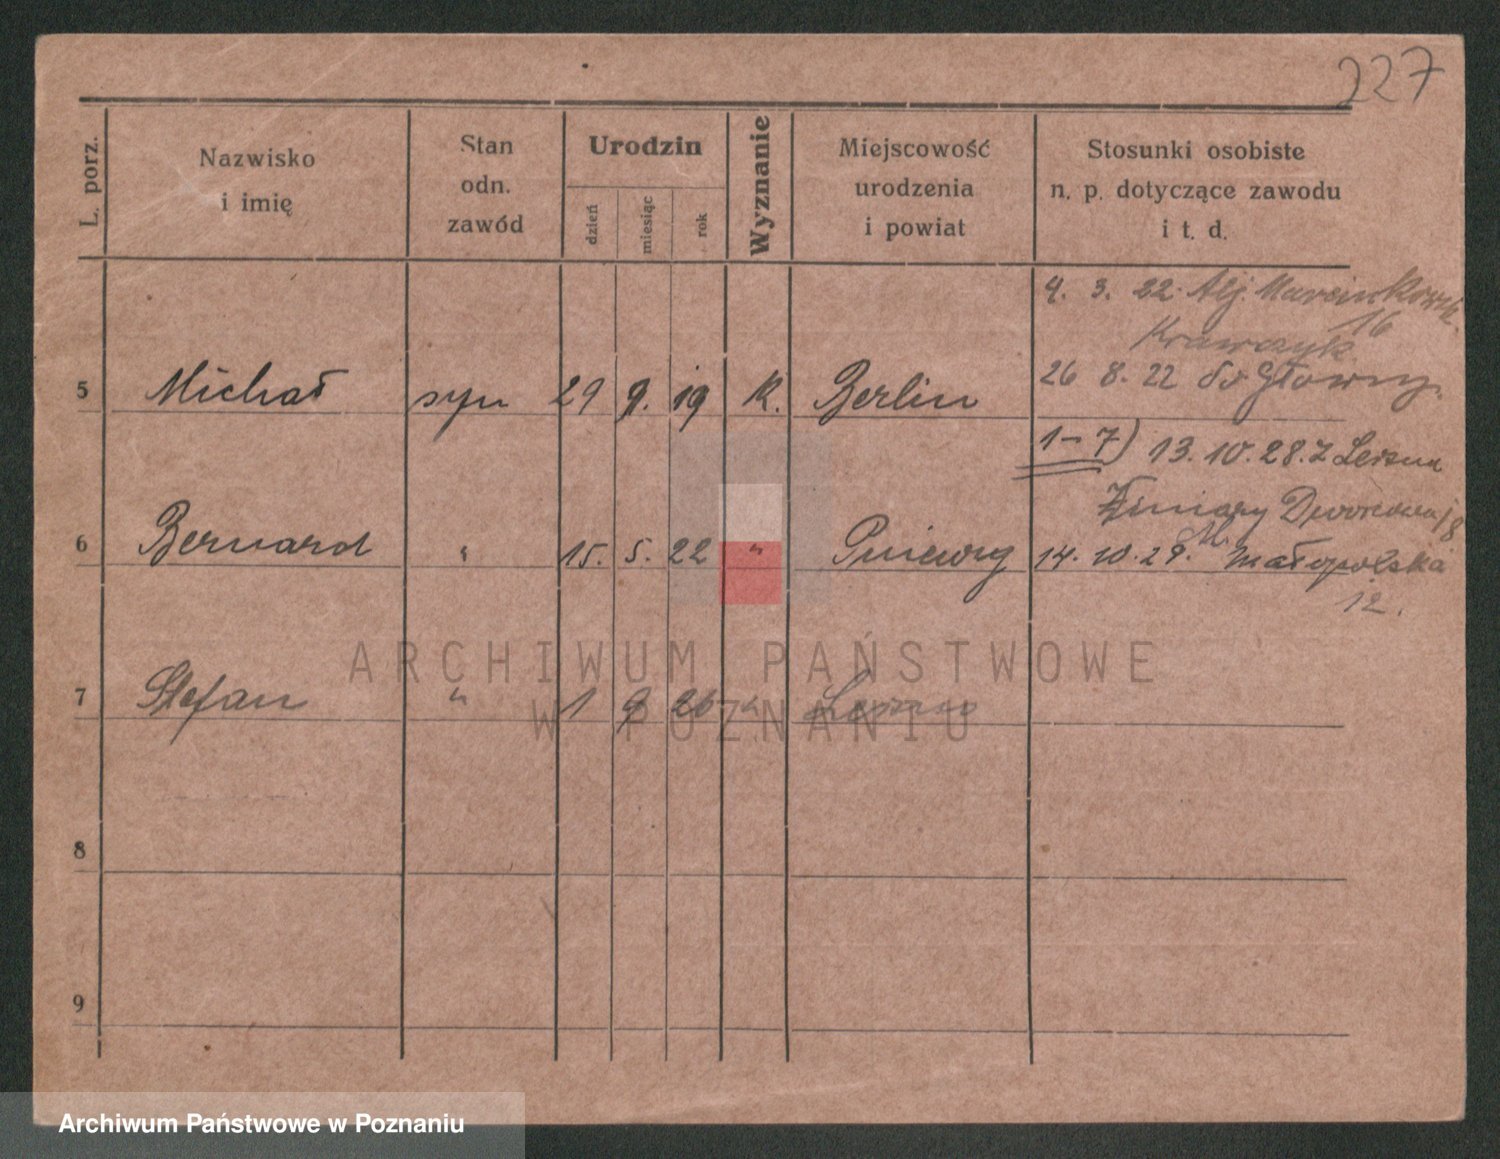 227
L. porz.
Nazwisko
i imię
Stan
odn.
zawód
Urodzin
dzień
miesiąc
rok
Wyznanie
Miejscowość
urodzenia
i powiat
Stosunki osobiste
n. p. dotyczące zawodu
i t. d.
4. 3. 22. Alj. Marcinkowsk.
16
Krawczyk
26 8. 22 do Główny.
5 Michał syn 29 9. 19 K. Berlin
1-7) 13. 10. 28. Z Leszna
Dworcowa 18
6 Bernard " 15. 5. 22 " Pniewy 14. 10. 29. Małopolska
12.
7 Stefan " 1 9 26 " Leszno
8
9
ARCHIWUM PAŃSTWOWE
W POZNANIU
Archiwum Państwowe w Poznaniu